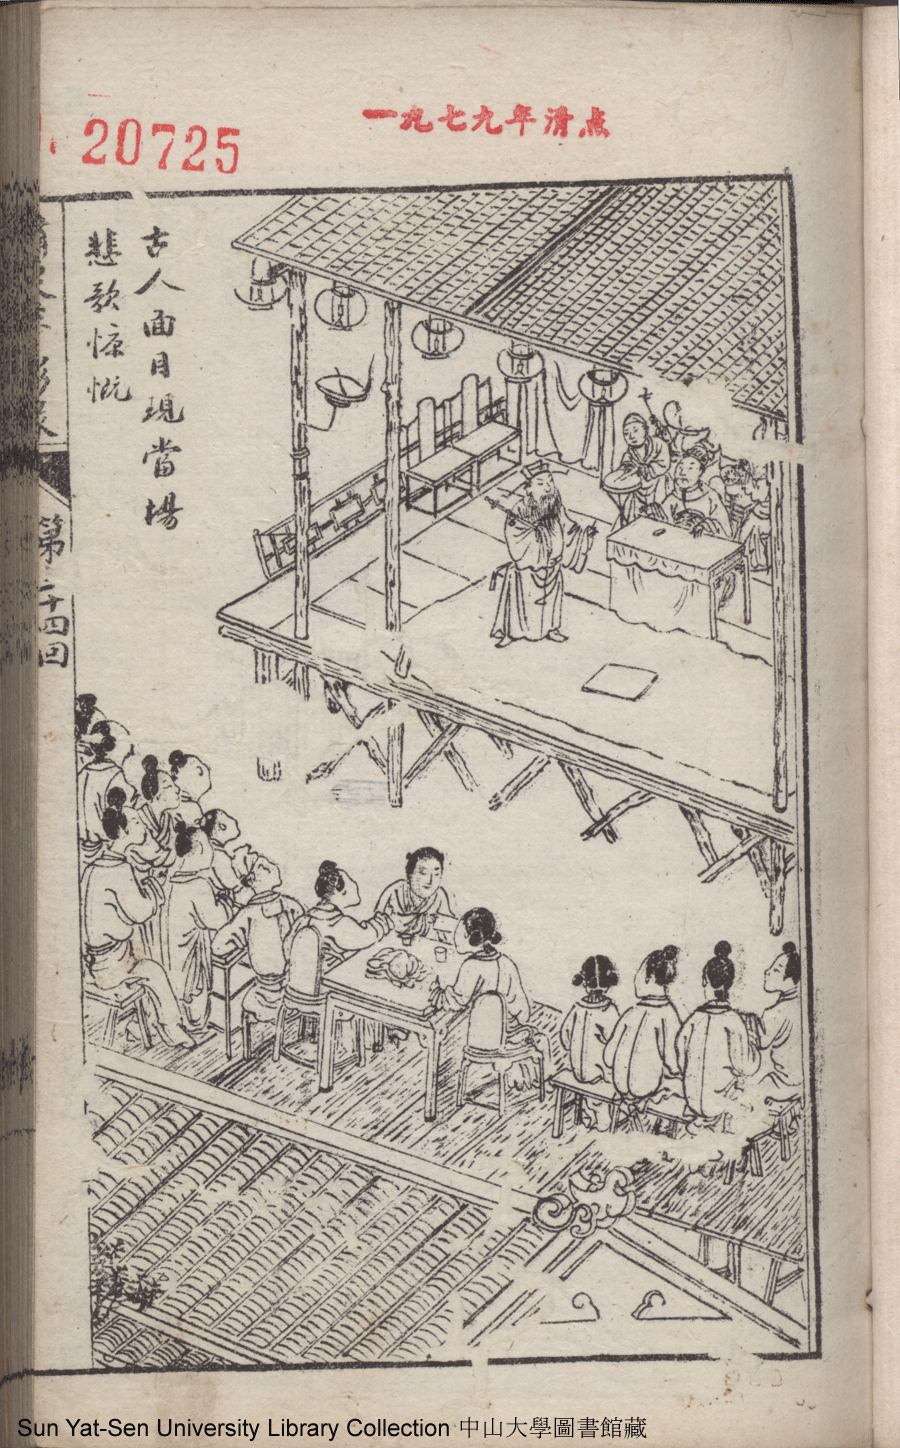 20725
一九七九年清点
古人面目現當場
悲歌慷慨
第二十四回
Sun Yat-Sen University Library Collection 中山大學圖書館藏